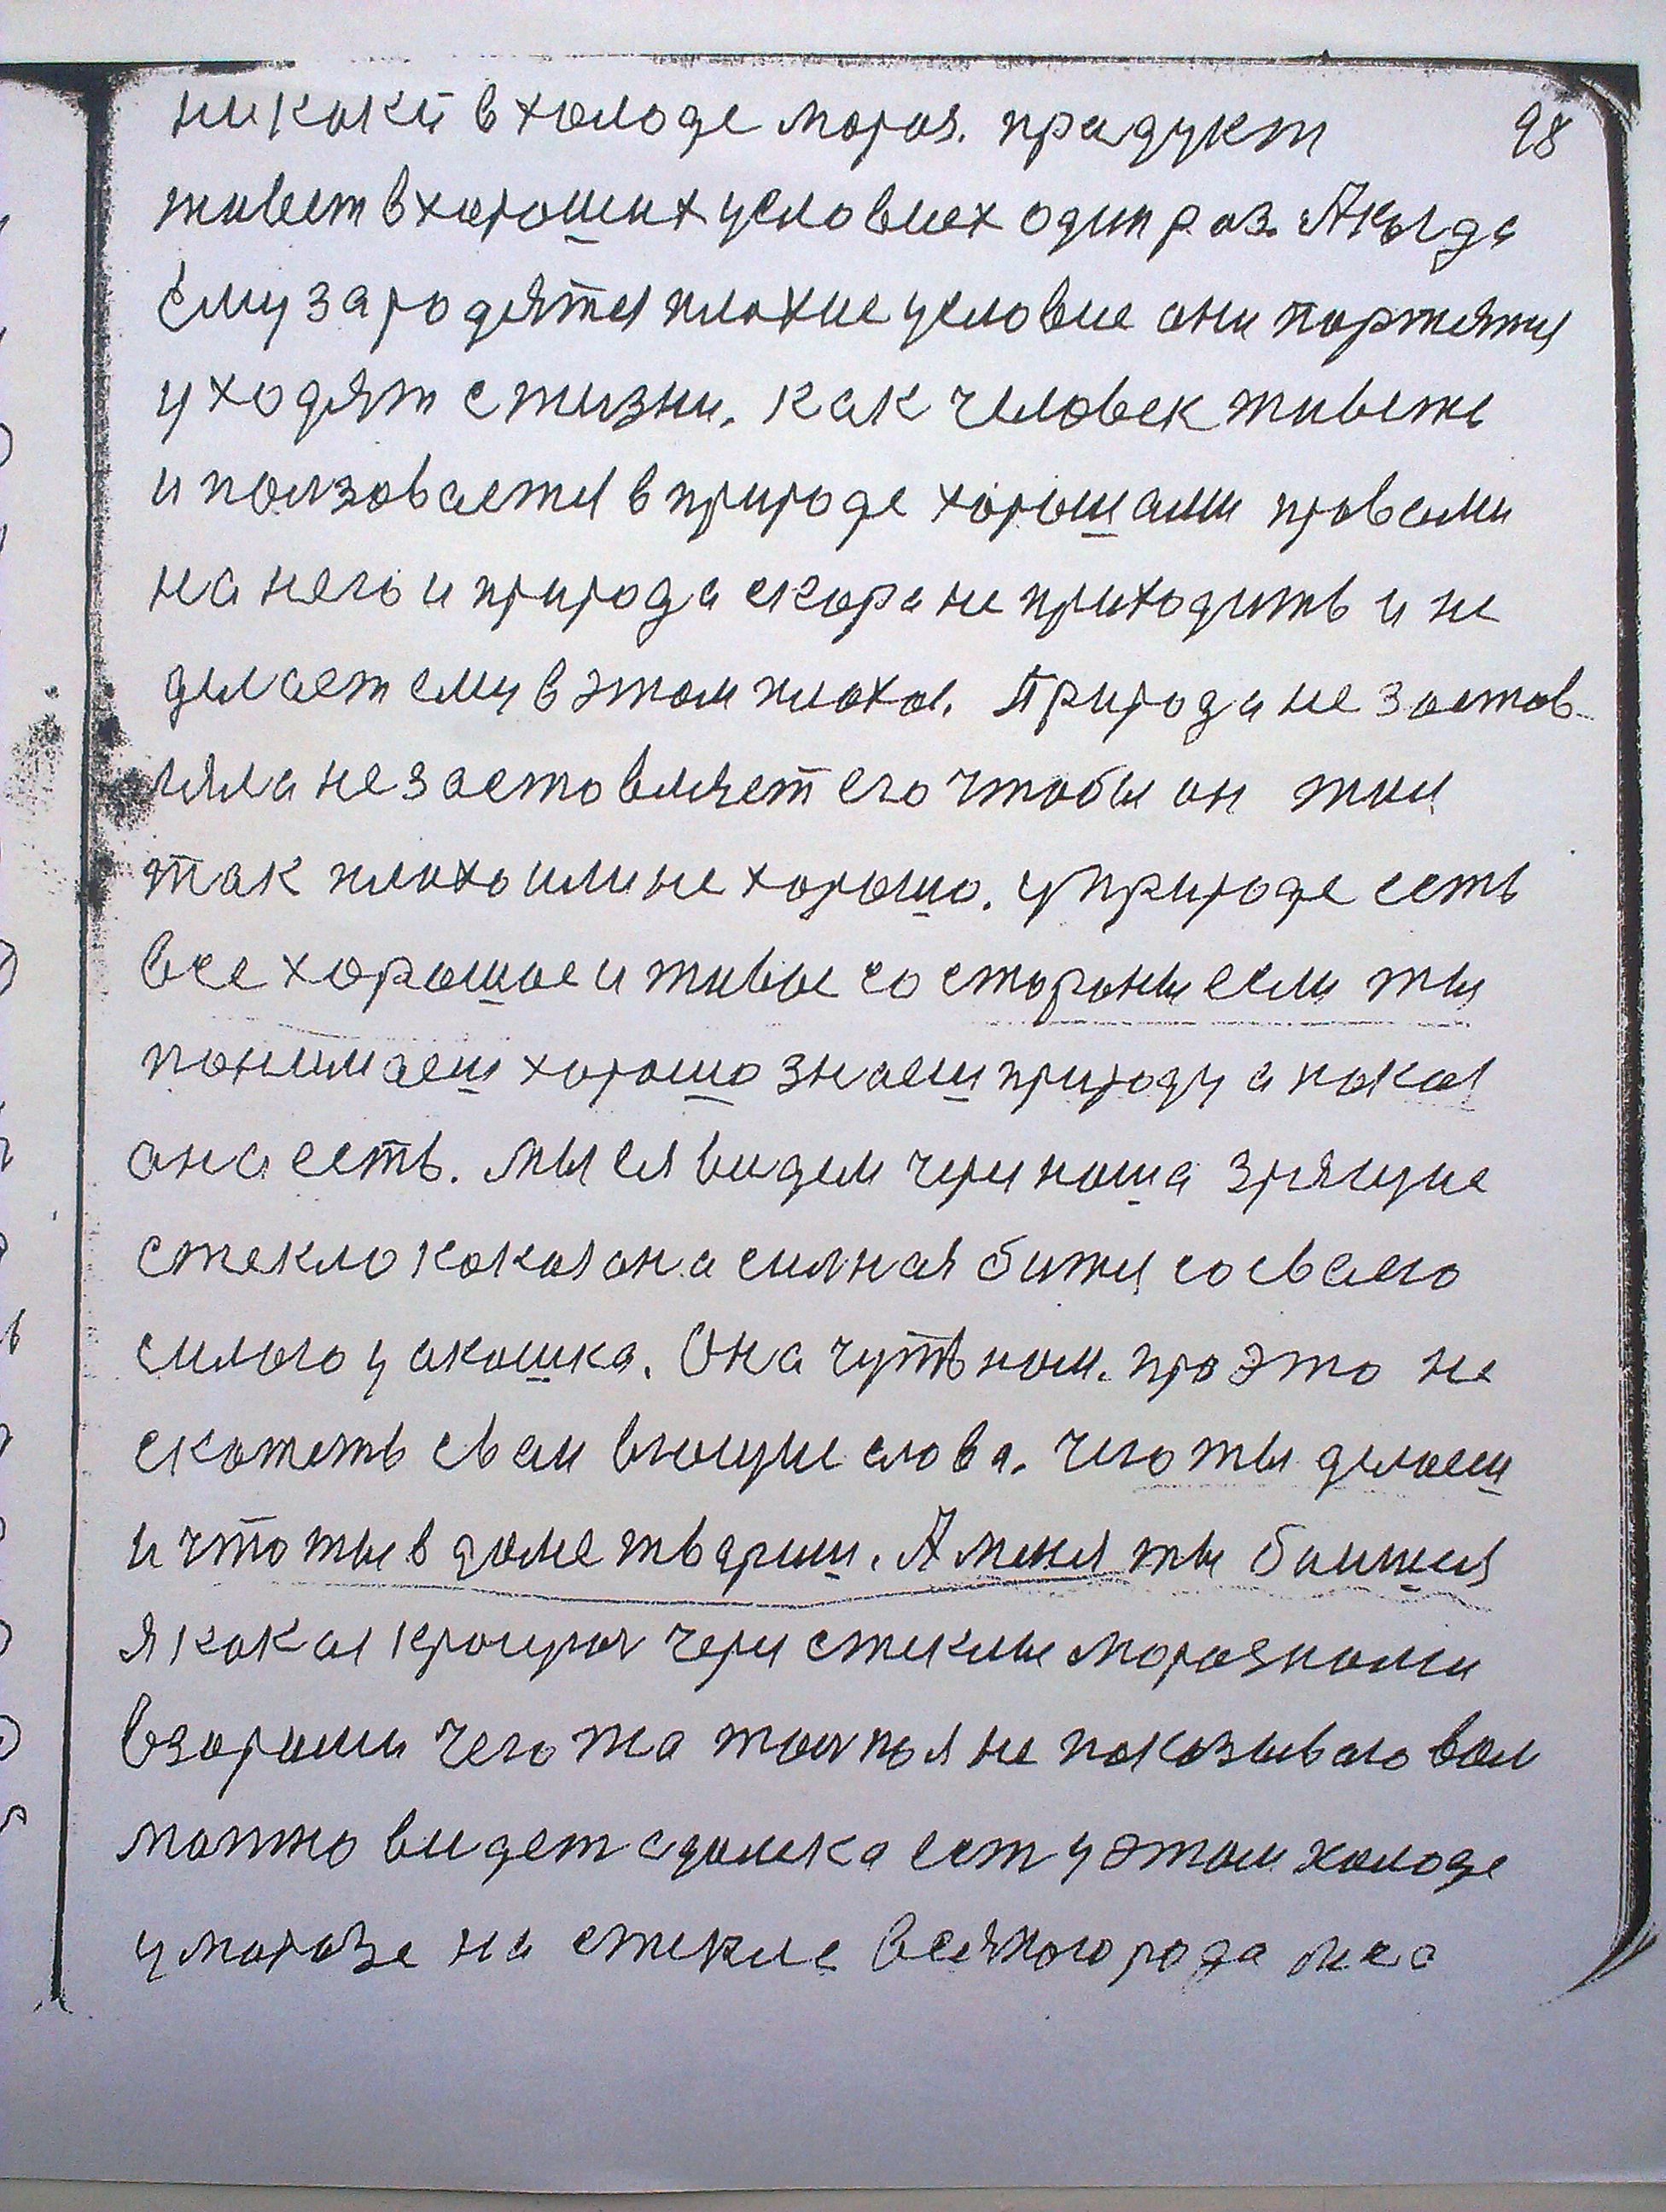 никакй в холоде мороз. прадукт 98
живет в хароших условиех один раз. А когда
ему зародятся плохие условие они портятся
уходят с жизни. Как человек живеть
и ползовается в природе хорошами правами
на него и природа скора не приходить и не
делает ему в этом плохое. Природа не застав-
ляла не заставляет его чтобы он жил
так плохо или не хорошо. у природе есть
все хорошое и живые со стораны если ты
понимаеш хорошо знаеш природу а какая
она есть. Мы ея видем через наша зрящие
стекло какая она силная бижя со сваего
силого у акошка. Она чуть нам. про это не
скажеть сваи вющие слова. Чего ты делаеш
и что ты в доме твориш. А меня ты боишся
я какая кроющая через стеклы морозными
взорами чего жа толпоя не показываю вам
можно видет сдалека ест у этом холоде
у марозе на стекле всякого рода леса